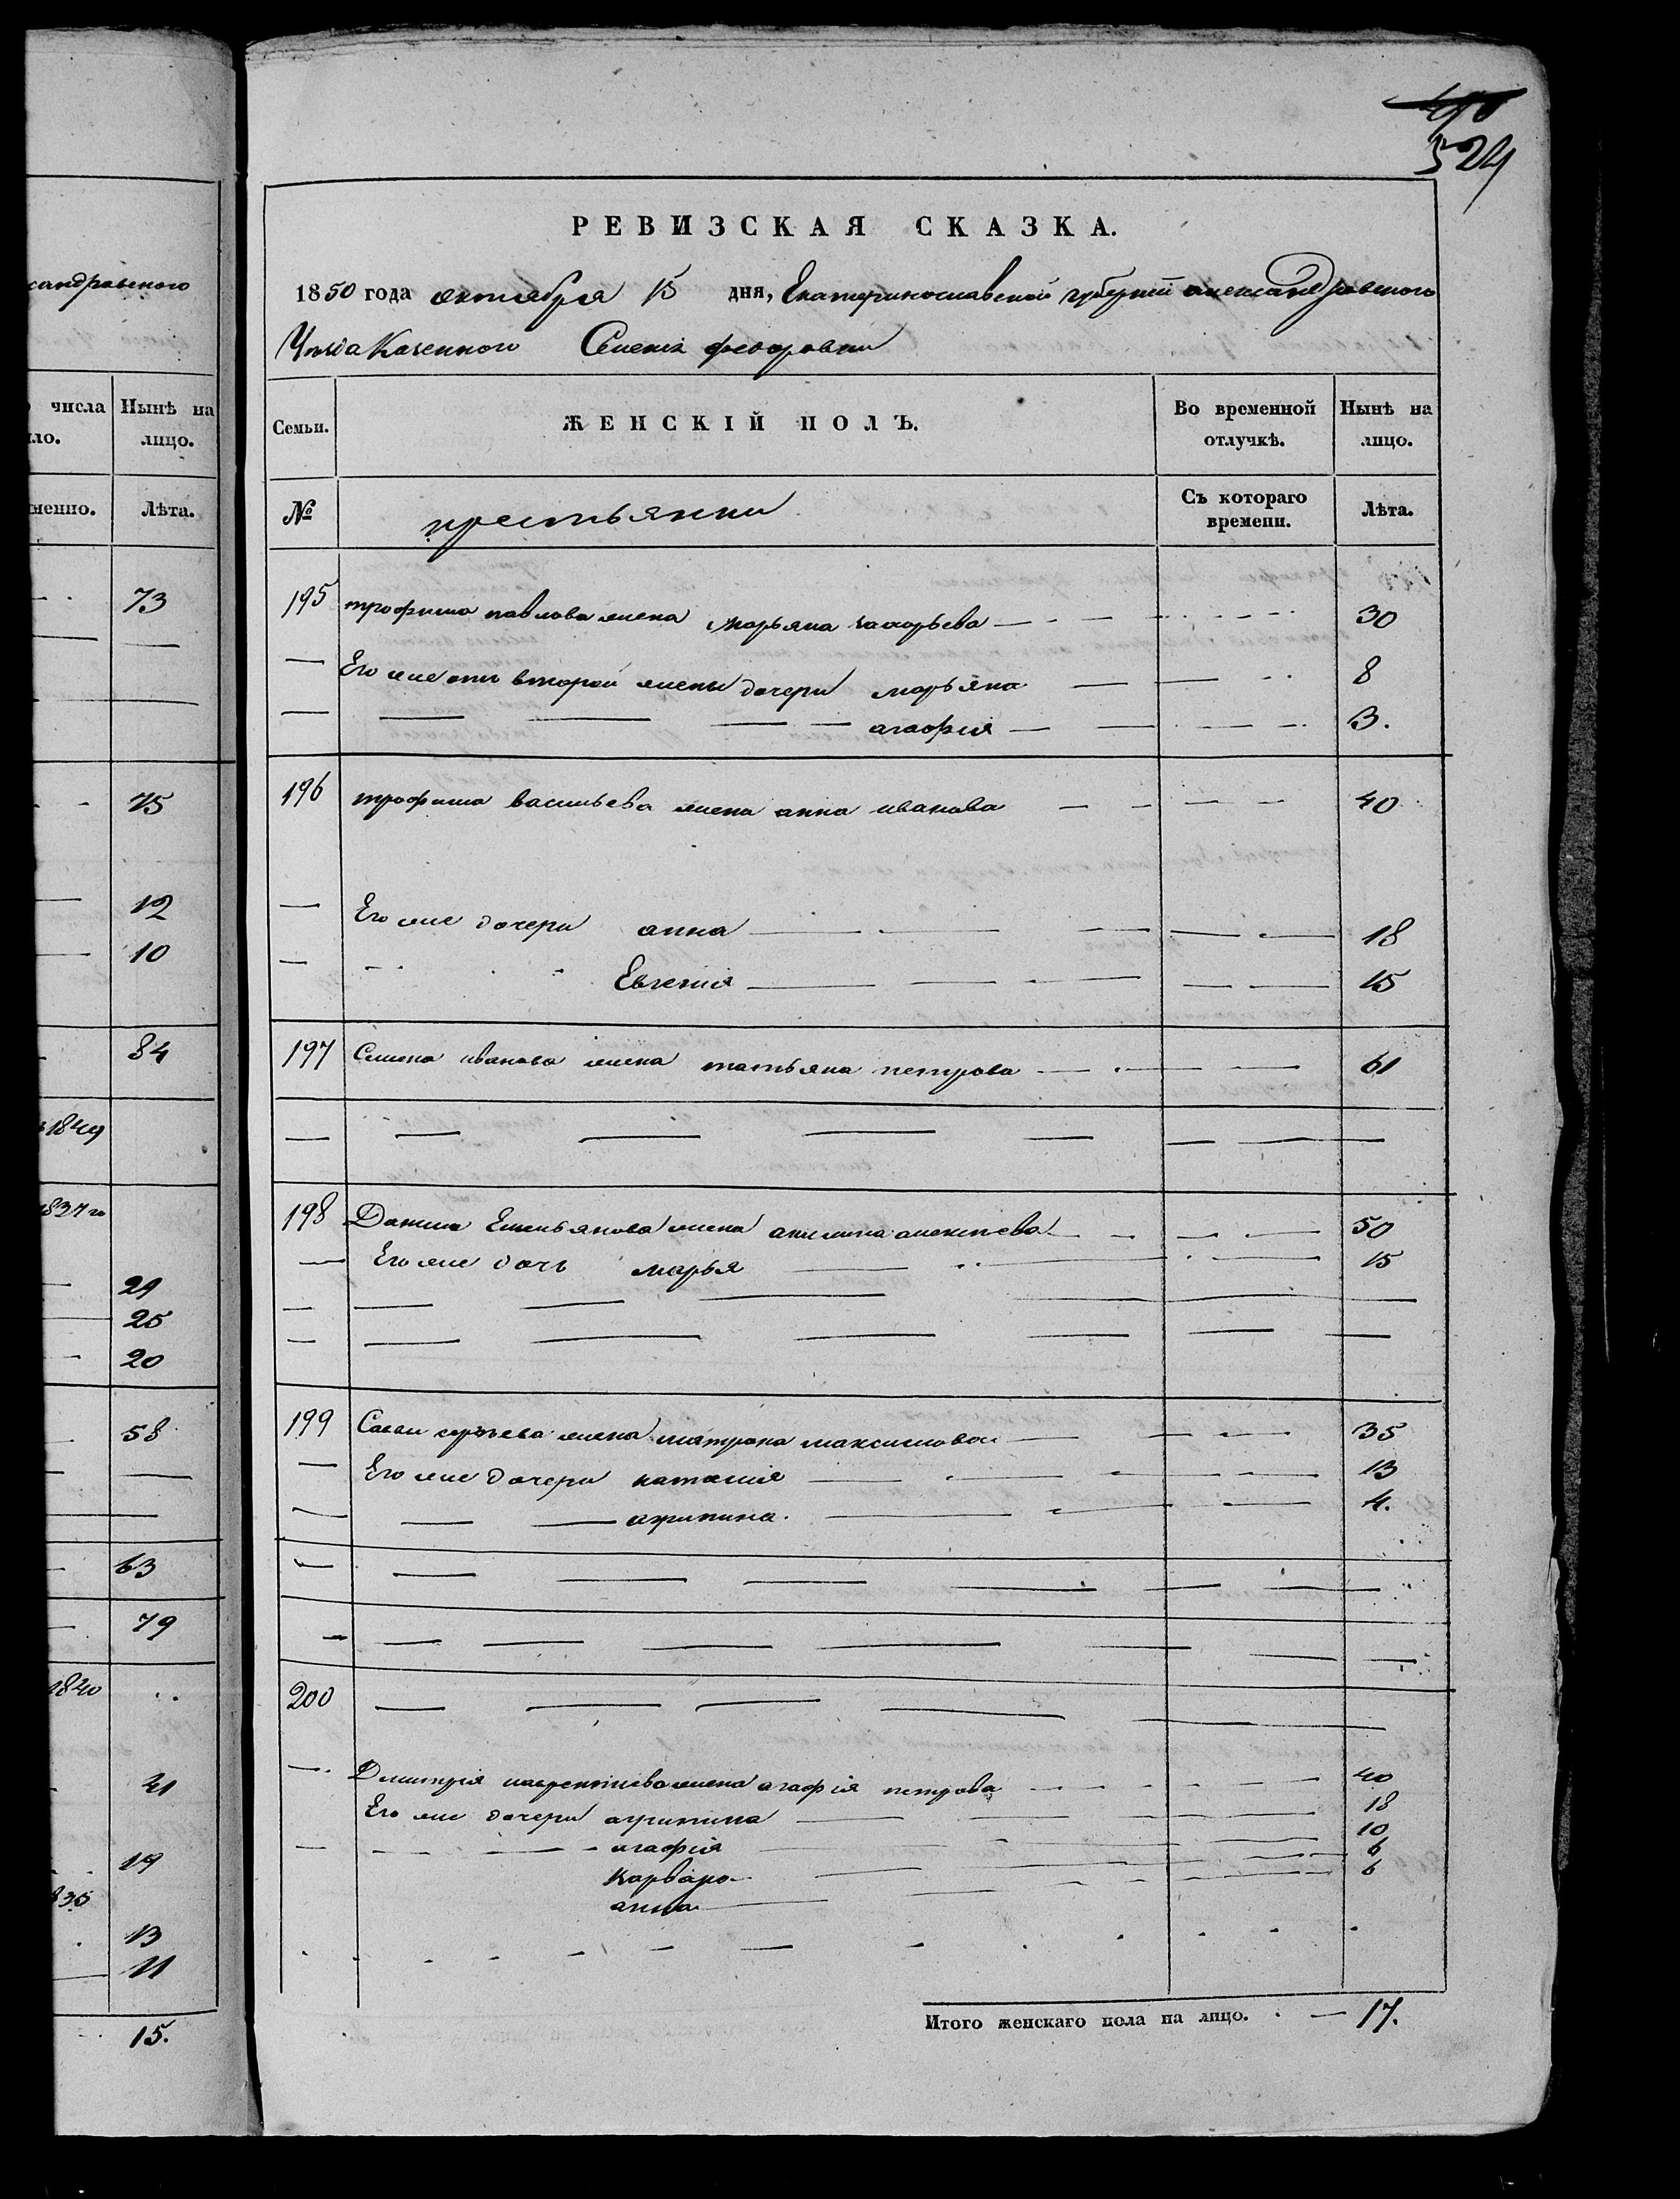 524
РЕВИЗСКАЯ СКАЗКА.
1850 года октября 15 дня, Екатеринославской губернии александровского
Уезда Казенного Селенія федоровки
Семьи. ЖЕНСКІЙ ПОЛЪ. Во временной отлучкѣ. Нынѣ на лицо.
№ крестьянки Съ котораго времени. Лѣта.
195 трофима павлова жена марьяна захарьева 30
Его же отъ второй жены дочери марьяна 8
агафія 3.
196 трофима васильева жена анна иванова 40
Его же дочери анна 18
Евгенія 15
197 Семена иванова жена татьяна петрова 61
198 Данила Емельянова жена акилина алексѣева 50
Его же дочь марья 15
199 Саввы сергѣева жена матрона максимова 35
Его же дочери наталія 13
агрипина. 4.
200
Дмитрія лаврентіева жена агафія петрова 40
Его же дочери агрипина 18
агафія 10
варвара 6
анна 6
Итого женскаго пола на лицо. 17.
сандровского
числа Нынѣ на
ло. лицо.
менно. Лѣта.
73
75
12
10
84
1849
1837го
29
25
20
58
63
79
1840
41
19
835
13
11
15.